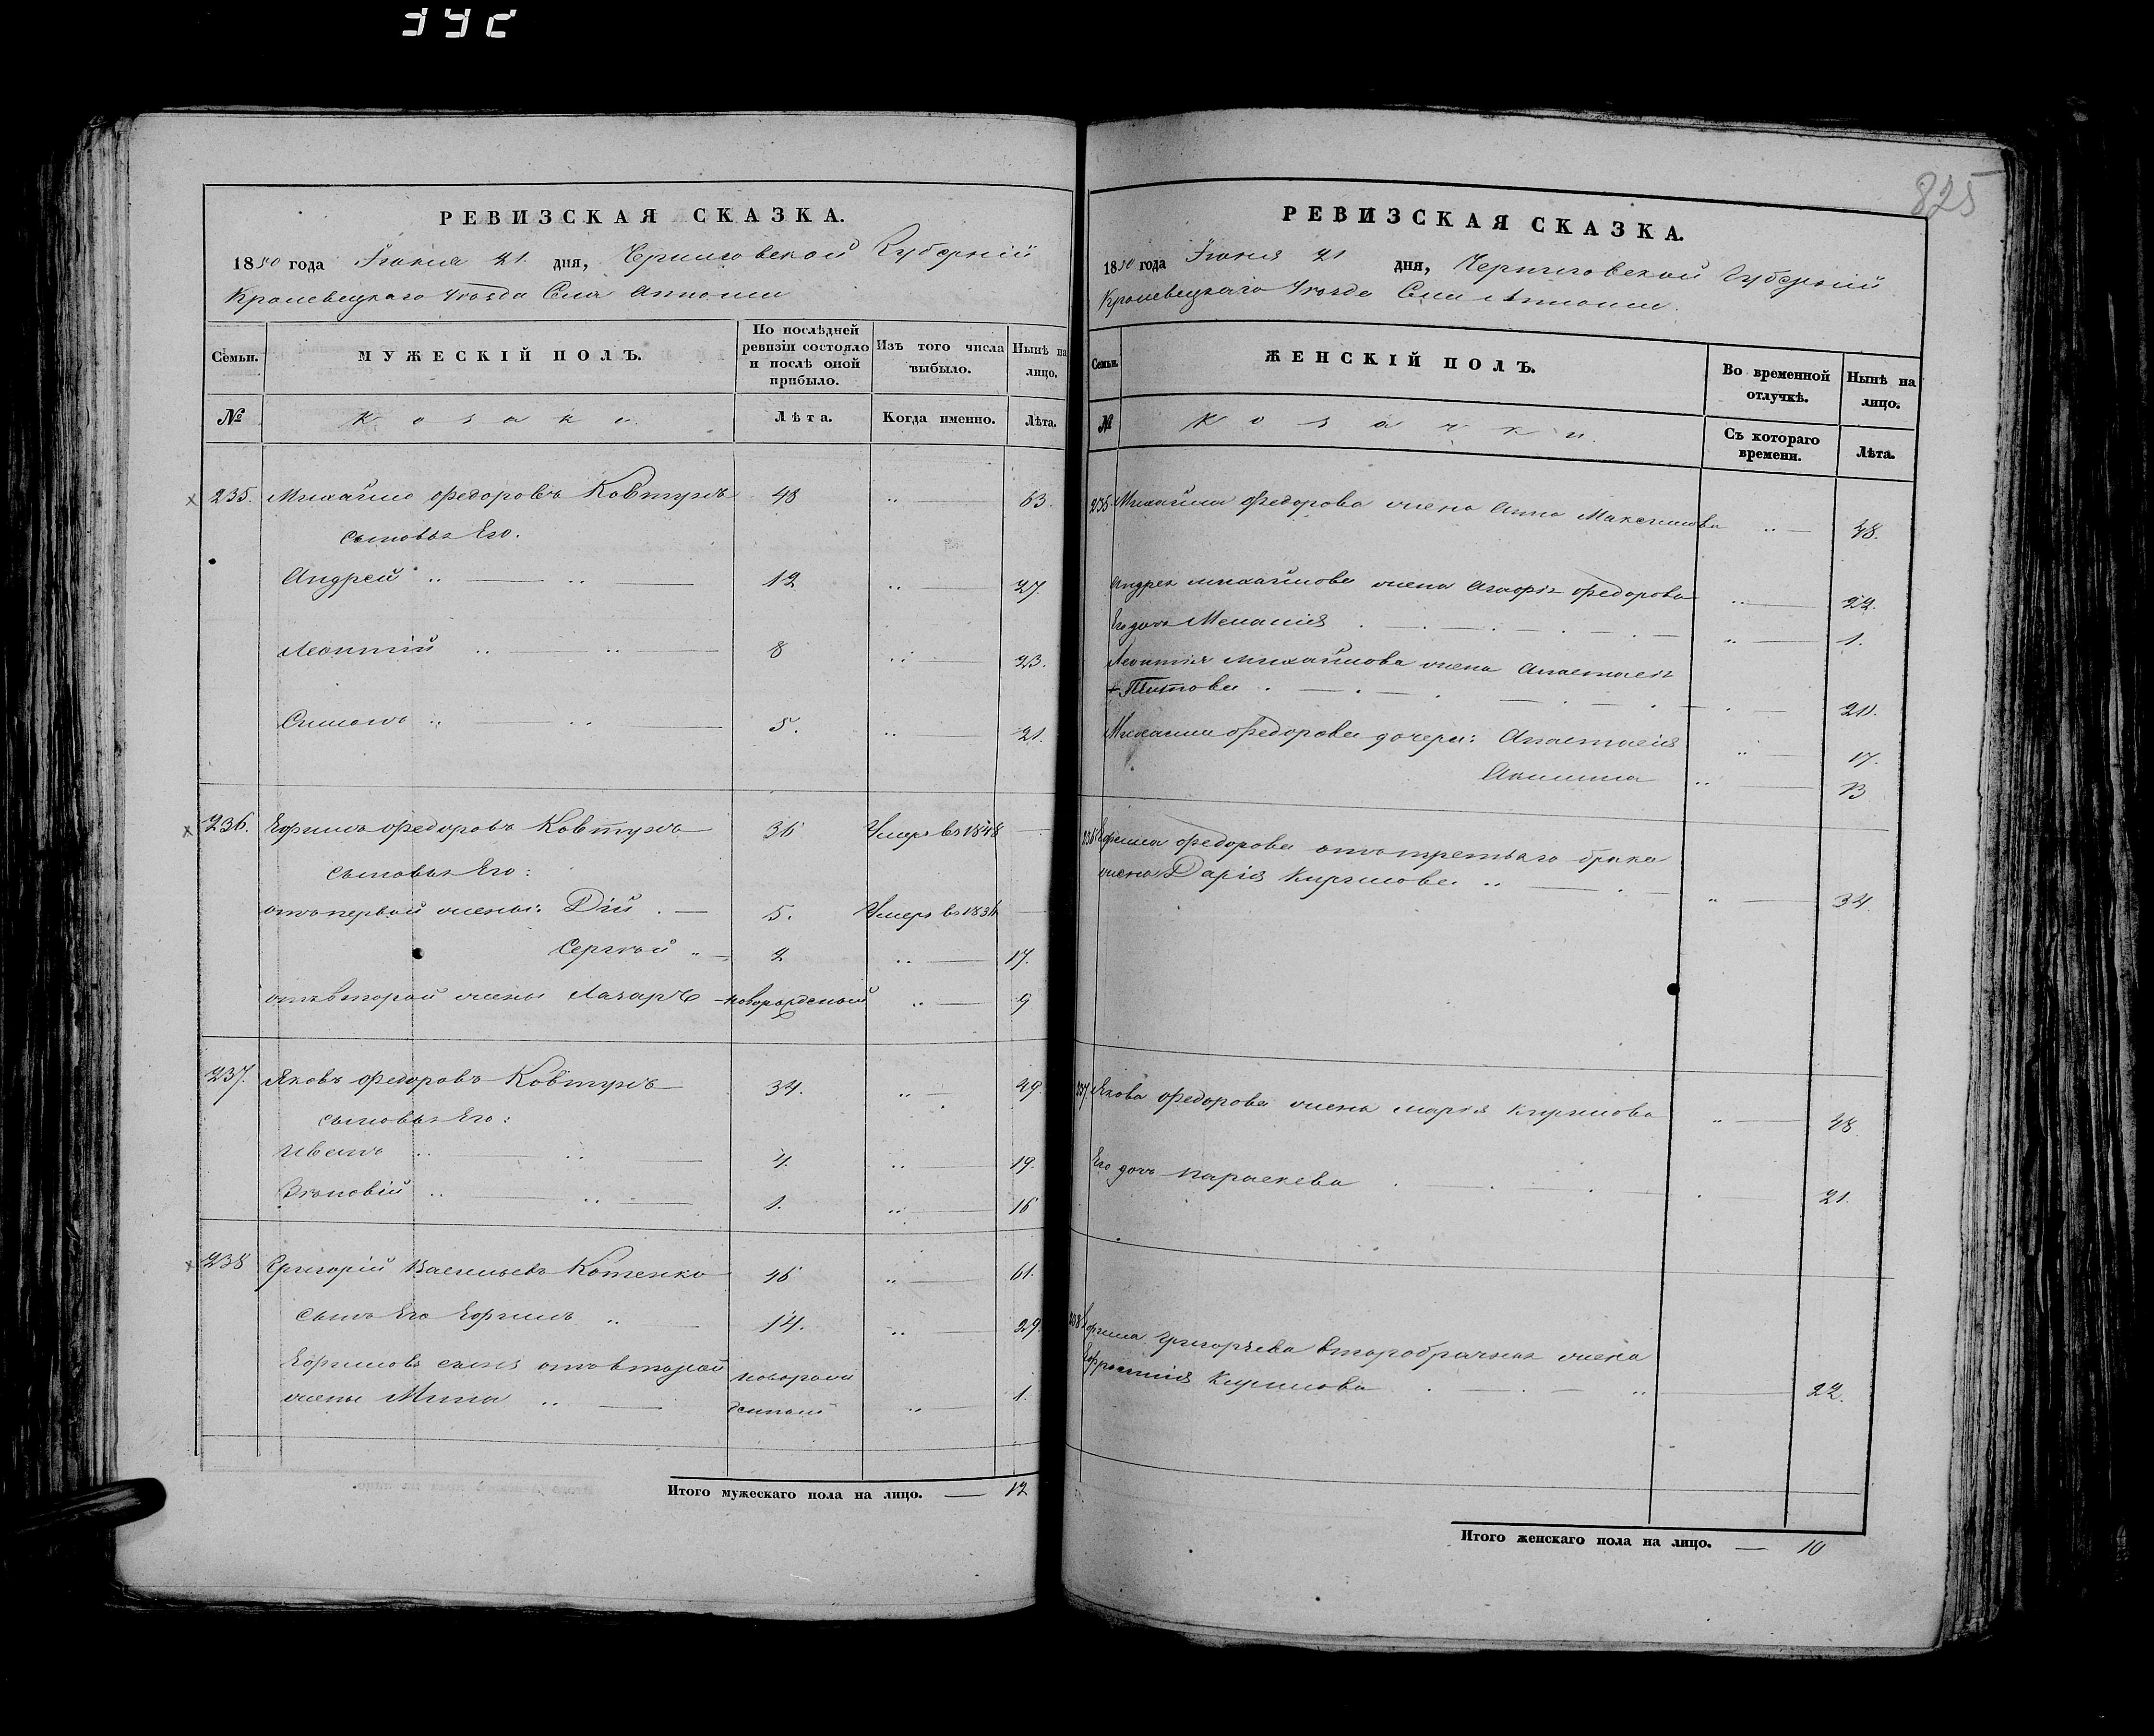 825
РЕВИЗСКАЯ СКАЗКА.
1850 года Іюня 21 дня, Черниговской Губерніи
Кролевецкаго Уѣзда Села
Семьи. МУЖЕСКІЙ ПОЛЪ. По послѣдней ревизіи состояло и послѣ оной прибыло. Изъ того числа выбыло. Нынѣ на лицо.
№ Козаки. Лѣта. Когда именно. Лѣта.
235. Михайло Федоровъ Ковтунъ 48 63.
сыновья Его.
Андрей 12 27.
Леонтій 8 23.
Симонъ 5. 21.
236. Ефимъ Федоровъ Ковтунъ 36 Умеръ въ 1848
сыновья Его:
отъ первой жены: Дій 5. Умеръ въ 1836
Сергѣй 2 17.
отъ второй жены Лазарь новорожденный 9
237. Яковъ Федоровъ Ковтунъ 34. 49.
сыновья Его:
Иванъ 4. 19.
Зѣновій 1. 16
238 Григорій Васильевъ Котенко 46 61.
сынъ Его Ефимъ 14. 29.
Ефимовъ сынъ отъ второй
жены Мина новорожденный 1.
Итого мужескаго пола на лицо. — 12
РЕВИЗСКАЯ СКАЗКА.
1850 года Іюня 21 дня, Черниговской Губерніи
Кролевецкаго Уѣзда Села
Семьи. ЖЕНСКІЙ ПОЛЪ. Во временной отлучкѣ. Нынѣ на лицо.
№ Козачки. Съ котораго времени. Лѣта.
235. Михайла Федорова жена Анна Максимова 48.
Андрея Михайлова жена Агафія Федорова 22.
Его дочь Меланія 1.
Леонтія Михайлова жена Анастасія
Титова 20.
Михайла Федорова дочери: Анастасія 17.
Акилина 13
236 Ефима Федорова отъ третьяго брака
жена Дарія Кирилова 34.
237. Якова Федорова жена Марія Кирилова 48.
Его дочь Параскева 21.
238 Ефима Григорьева второбрачная жена
Ефросинія Кирилова 22.
Итого женскаго пола на лицо. — 10